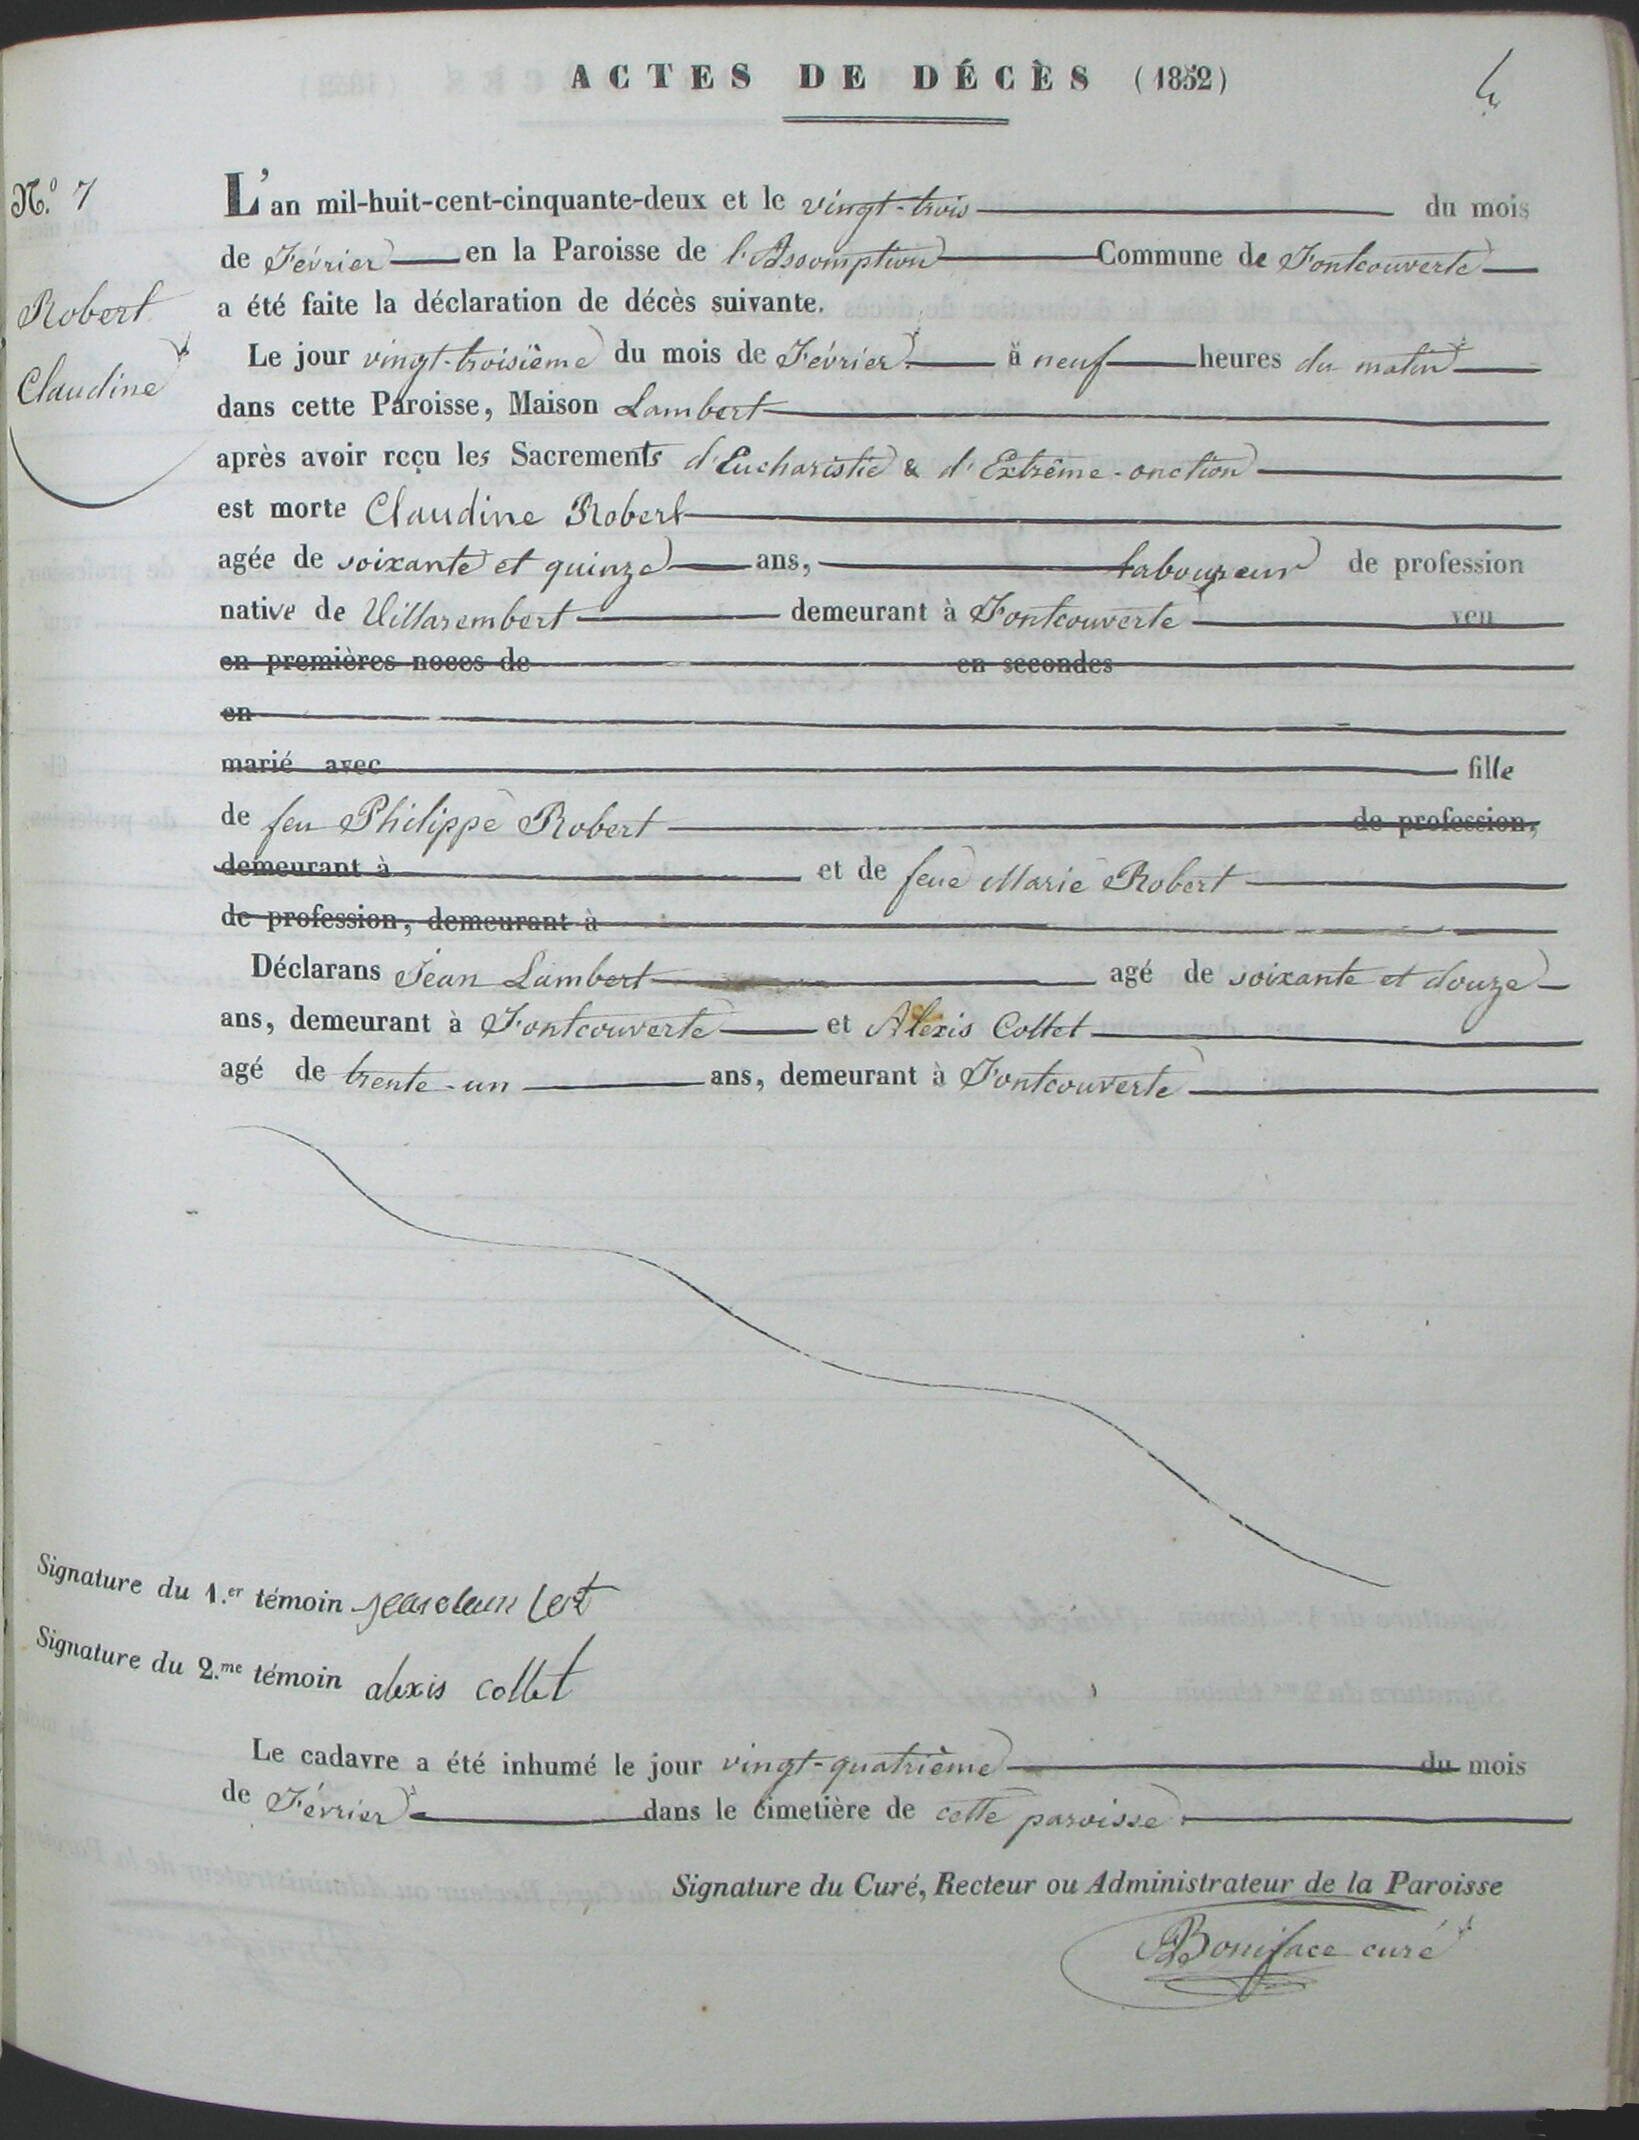 ACTES DE DÉCÈS (1852)
4
N.º 7
Robert
Claudine
L'an mil-huit-cent-cinquante-deux et le vingt-trois du mois
de Février en la Paroisse de l'Assomption Commune de Fontcouverte
a été faite la déclaration de décès suivante.
Le jour vingt-troisième du mois de Février à neuf heures du matin
dans cette Paroisse, Maison Lambert
après avoir reçu les Sacrements d'Eucharistie & d'Extrême-onction
est morte Claudine Robert
agée de soixante et quinze ans, laboureur de profession
native de Villarembert demeurant à Fontcouverte veu
en premières noces de en secondes
en
marié avec fille
de feu Philippe Robert de profession,
demeurant à et de feue Marie Robert
de profession, demeurant à
Déclarans Jean Lambert agé de soixante et douze
ans, demeurant à Fontcouverte et Alexis Collet
agé de trente-un ans, demeurant à Fontcouverte
Signature du 1.er témoin jean lam bert
Signature du 2.me témoin alexis collet
Le cadavre a été inhumé le jour vingt-quatrième du mois
de Février dans le cimetière de cette paroisse
Signature du Curé, Recteur ou Administrateur de la Paroisse
Boniface curé